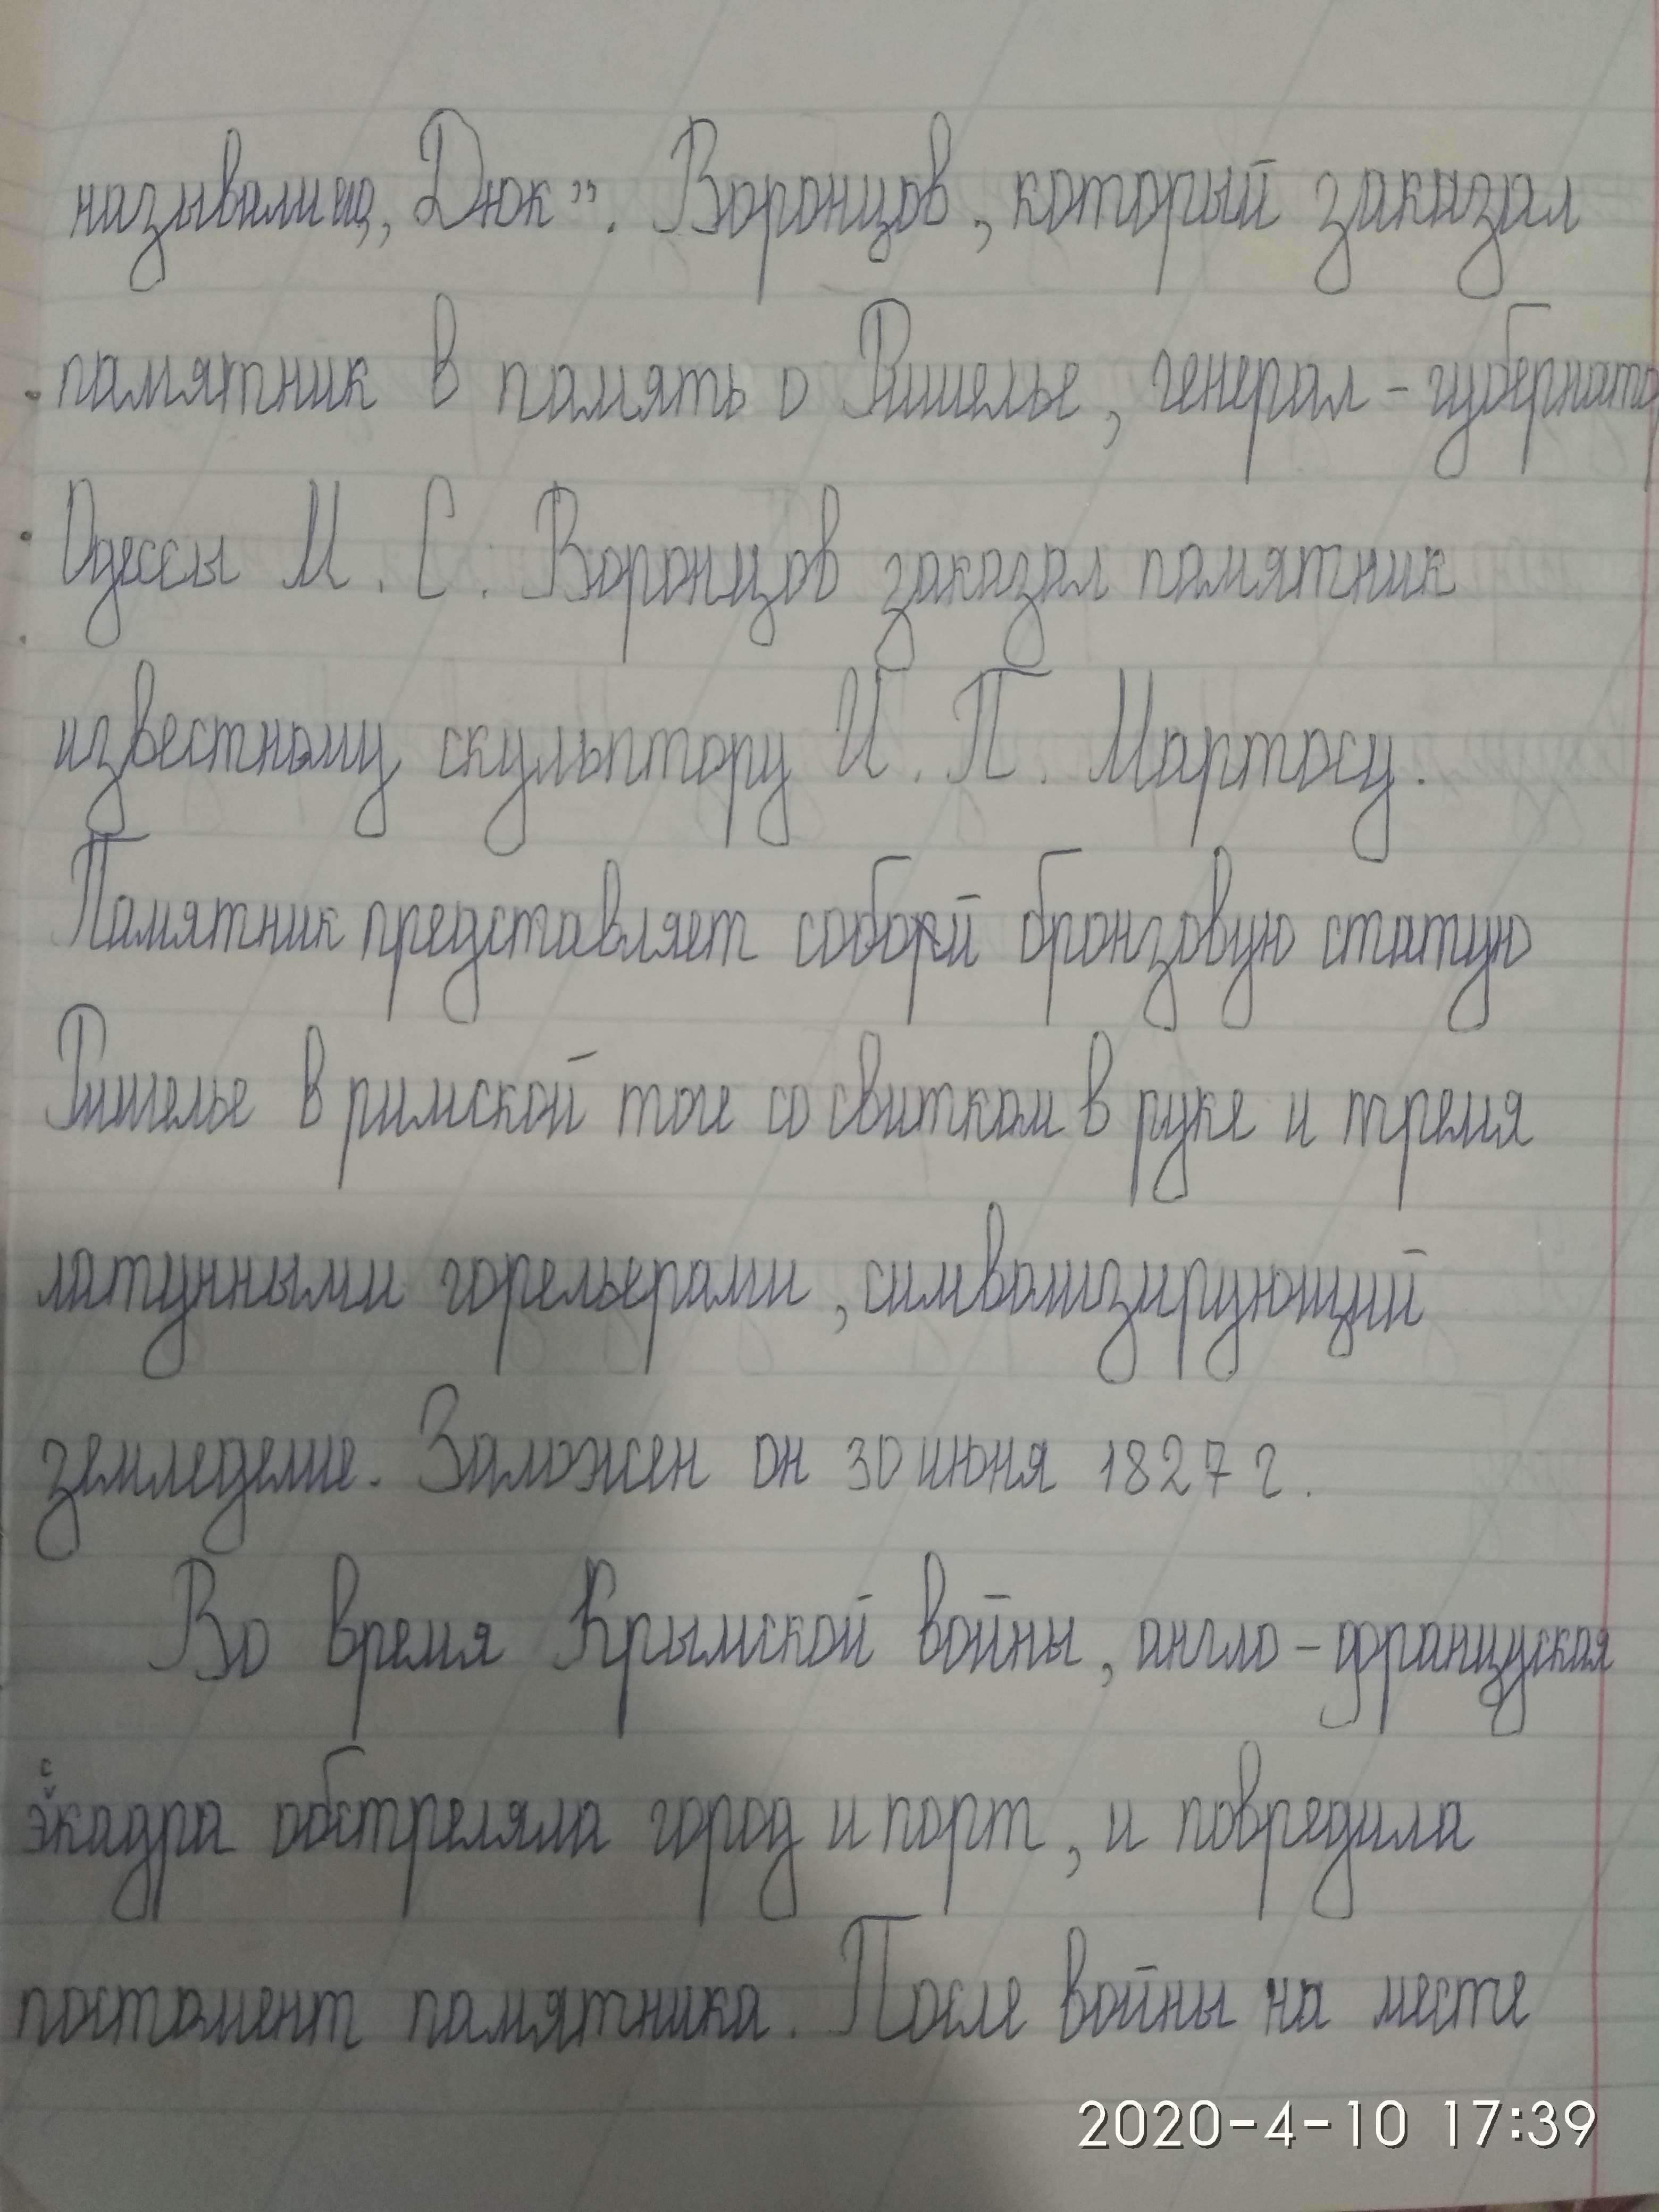 называли его, Дюк". Воронцов, который заказал
памятник в память о Ришелье, генерал-губернатор
Одессы М. С. Воронцов заказал памятник
известному скульптору И. П. Мартосу.
Памятник представляет собой бронзовую статую
Ришелье в римской тоге со свитком в руке и тремя
латунными горельерами, символизирующий
земледелие. Заложен он 30 июня 1827 г.
Во время Крымской войны, англо-француская
эскадра обстреляла город и порт, и повредила
постамент памятника. После войны на месте
2020-4-10 17:39